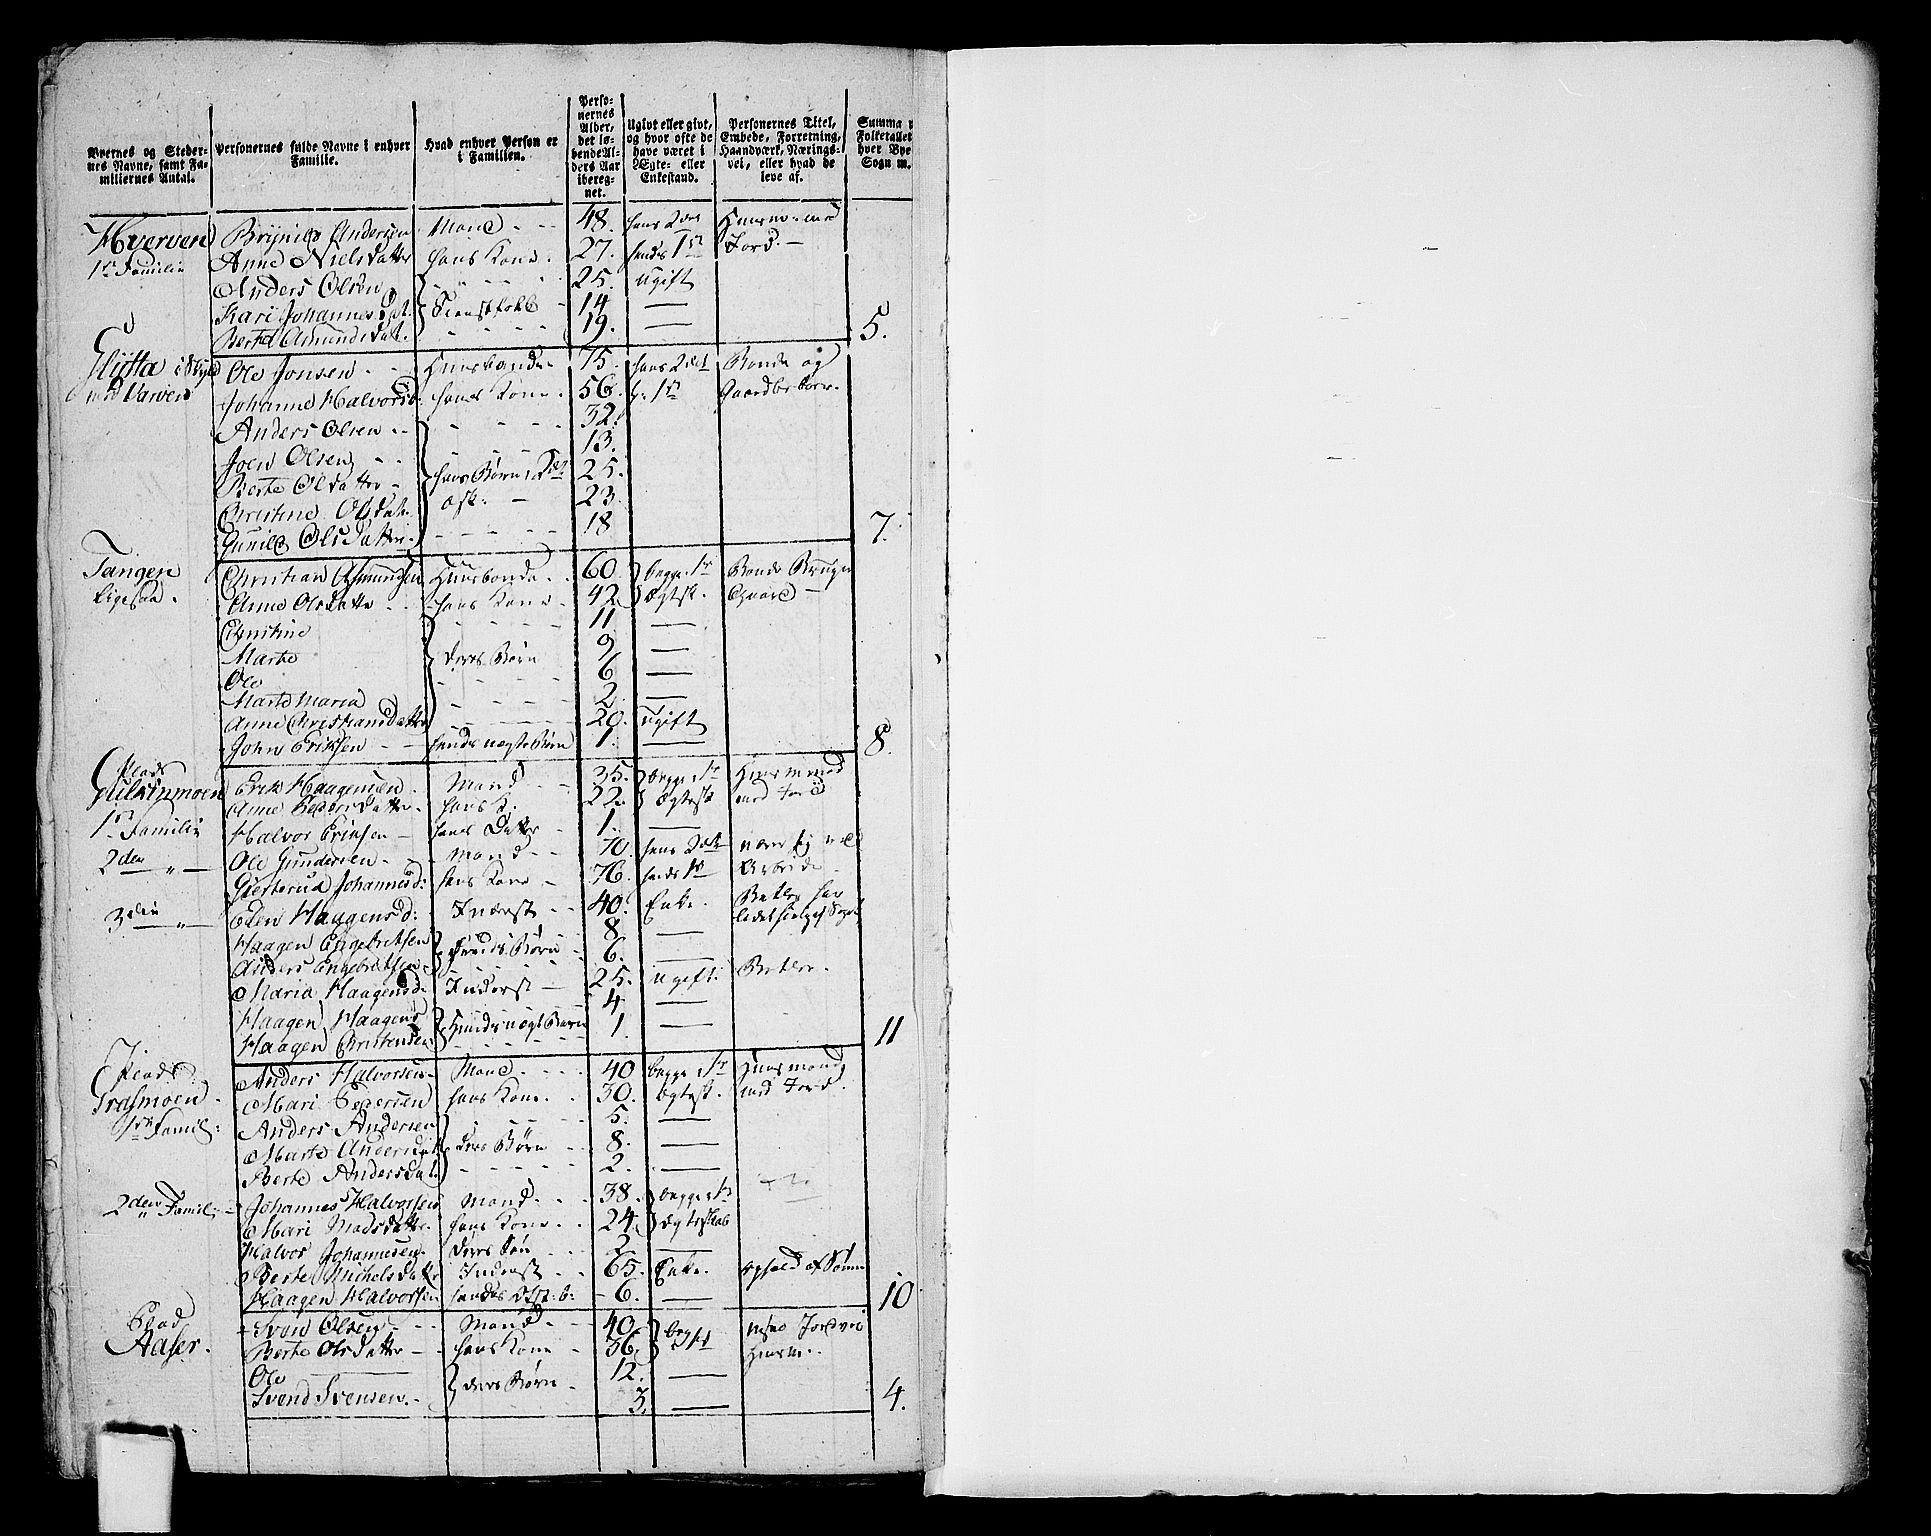 Byernes og Stedernes Navne, samt Familiernes Antal. | Personernes fulde Navne i enhver Familie. | Hvad enhver Person er i Familien. | Personernes Alder, det løbende Alders Aar iberegnet. | Ugivt eller givt, og hvor ofte de have været i Egte- eller Enkestand. | Personernes Titel, Embede, Forretning, Haandværk, Næringsvei, eller hvad de leve af. | Summa Folketallet hver Bye Sogn
Hverven | Brynild Andersen | Mand | 48. | hans 2den | Huusm. med
1ste Familie | Anne Nielsdatter | hans Kone | 27. | hendes 1ste | Jord.
Anders Olsen | 25. | ugift
Kari Johannesdat. | Tienstfolk | 14 | —
Berthe Amundsdat. | 19. | — | 5.
Ole Jonsen | Huusbonde | 75. | hans 2det | Bonde og
Johanne Halvorsd. | hans Kone | 56. | h. 1ste | Gaardbeboer
Anders Olsen | 32.
Joen Olsen | 13.
Berte Olsdatter | hans Børn i 2det | 25.
Christine Olsdat. | Ægt. | 23.
Gunild Olsdatter | 18 | 7.
Tangen | Christian Asmundsen | Huusbonde | 60. | begge 1ste | Bonde Bruger
Ligesaa. | Anne Olsdatter | hans Kone | 42 | Ægtesk. | Gaard
Christine | 11 | —
Marte | deres Børn | 9 | —
Ole | 6 | —
Marte Maria | 2 | —
Anne Christiansdatter | 20. | ugift
John Eriksen | hendes uægte Børn | 1. | — | 8.
Plads
Gulsinmoen | Erik Haagensen | Mand | 35. | begge 1ste | Huusmand
Anne Pedersdatter | hans K. | 22. | Ægtesk | med Jord
1ste Familie | Halvor Eriksen | hans Datter | 1. | —
2den " | Ole Gundersen | Mand | 70. | hans 2det | nærer sig ved
Gierterud Johannesd: | hans Kone | 76. | hendes 1ste | Arbeide
3die " | Eden Haagensd: | Inderst | 40. | Enke.
Haagen Engebretsen | hendes Børn | 8 | —
Anders Engebretsen | 6. | —
Maria Haagensd. | Inderst | 25. | ugift. | Betler.
Haagen Haagens | hendes uægte Børn | 4 | —
Haagen Christensen | 1. | — | 11
Plads
Grasmoen | Anders Halvorsen | Mand | 40 | begge 1ste | Huusmand
Mari Pedersen | hans Kone | 30. | Ægtesk. | med Jord.
1ste Famil: | Anders Andersen | 5. | —
Marte Andersdat | deres Børn | 8. | —
Berte Andersdat. | 2. | —
2den Famil: | Johannes Halvorsen | Mand | 38. | begge 1ste
Mari Madsdatter | hans Kone | 24. | Ægteskab
Halvor Johannesen | deres Søn | 2 | —
Berte Michelsdatter | Inderst | 65. | Enke. | ophold af Sønnen
Haagen Halvorsen | 6. | — | 10
Plad
Aaser. | Sven Olsen | Mand | 40.
Berte Olsdatter | hans Kone | 36. | Huusm.
Ole | 12. | —
Svend Svensen | deres Børn | 3. | — | 4.